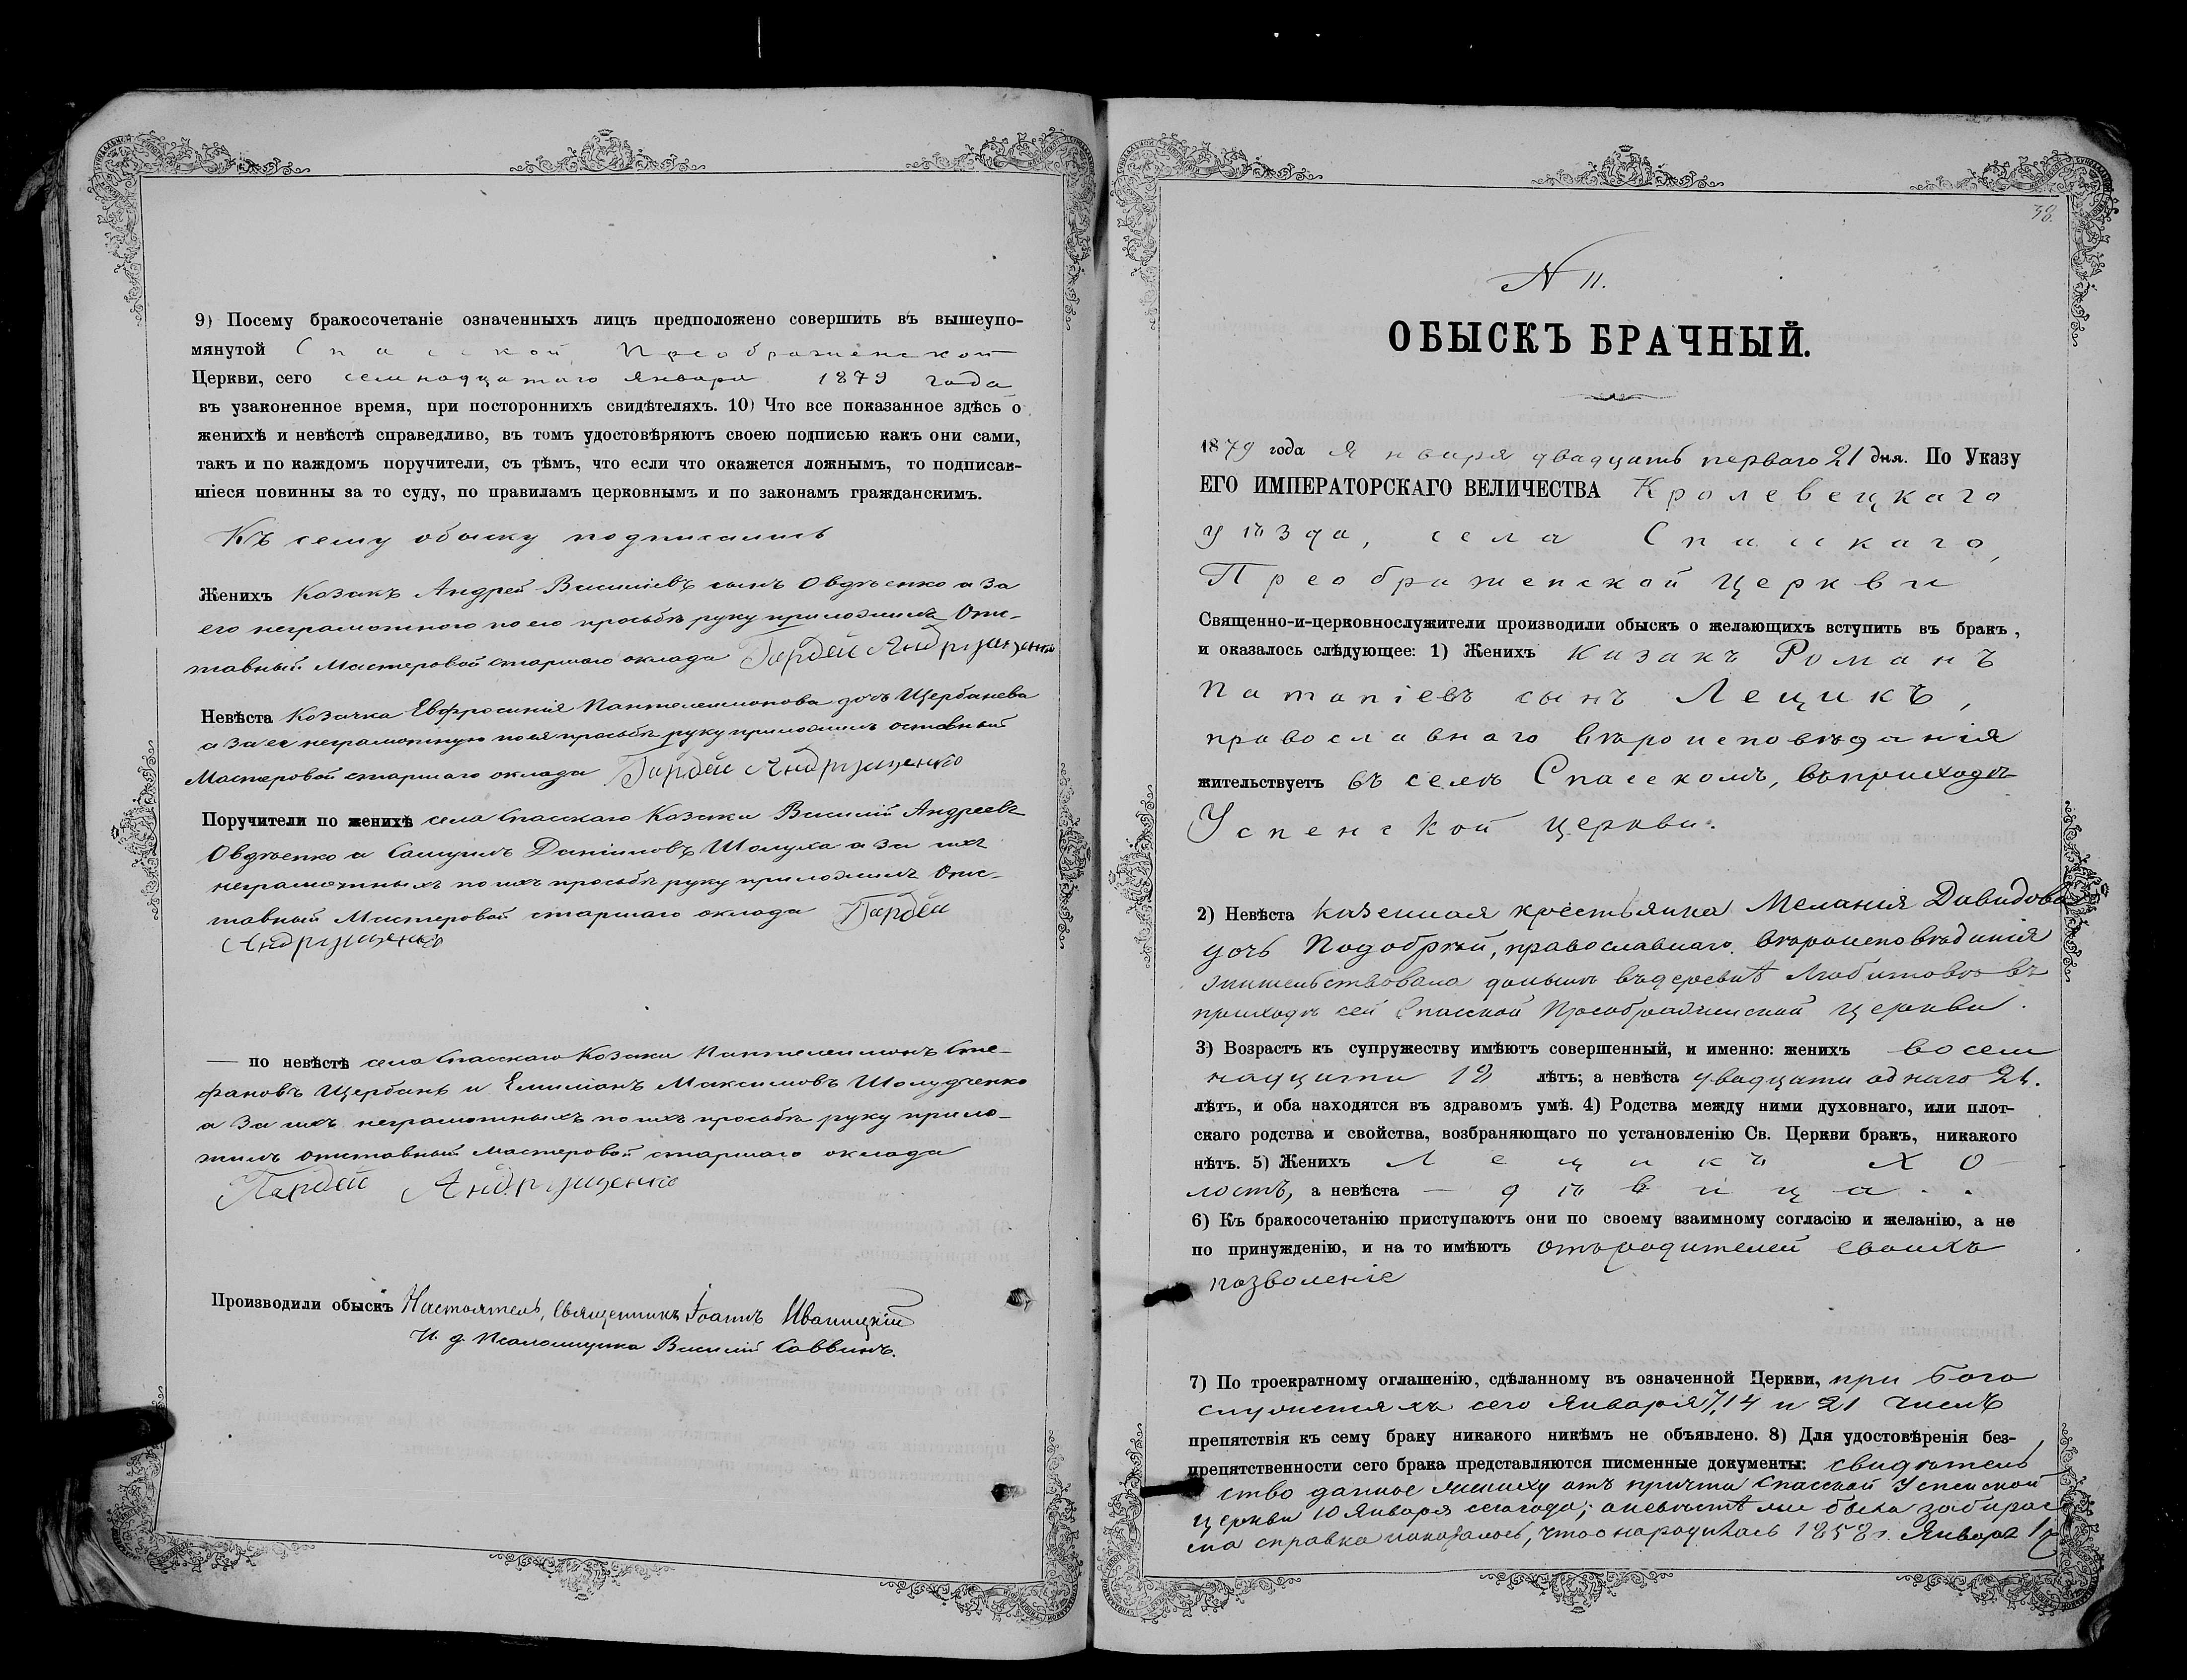 9) Посему бракосочетаніе означенныхъ лицъ предположено совершить въ вышеупо-
мянутой Спасской Преображенской
Церкви, сего семнадцатаго января 1879 года
въ узаконенное время, при постороннихъ свидѣтеляхъ. 10) Что все показанное здѣсь о
женихѣ и невѣстѣ справедливо, въ томъ удостовѣряютъ своею подписью какъ они сами,
такъ и по каждомъ поручители, съ тѣмъ, что если что окажется ложнымъ, то подписав-
шіеся повинны за то суду, по правиламъ церковнымъ и по законамъ гражданскимъ.
Къ сему обыску подписались
Женихъ Козакъ Андрей Василіевъ сынъ Овдѣенко а за
его неграмотного по его просьбѣ руку приложилъ Отс-
тавный Мастеровой старшаго оклада Гардѣй Андрющенко
Невѣста Козачка Евфросинія Пантелеимонова дочь Щербанева
а за ее неграмотную по ея просьбѣ руку приложилъ оставный
Мастеровой старшаго оклада Гардѣй Андрющенко
Поручители по женихѣ села Спасскаго Козаки Василій Андреевъ
Овдѣенко и Самуилъ Даніиловъ Шолуха а за ихъ
неграмотныхъ по ихъ просьбѣ руку приложилъ Отс-
тавный Мастеровой старшаго оклада Гардѣй
Андрющенко
— по невѣстѣ села Спасскаго Козаки Пантелеимонъ Сте-
фановъ Щербань и Емиліанъ Максимовъ Шолудченко
а за ихъ неграмотныхъ по ихъ просьбѣ руку прило-
жилъ отставный мастеровой старшаго оклада
Гардѣй Андрющенко
Производили обыскъ Настоятель, Священникъ Іоаннъ Иваницкій
И. д. Псаломщика Василій Саввинъ.
38.
N 11.
ОБЫСКЪ БРАЧНЫЙ.
1879 года Января двадцать перваго 21 дня. По Указу
ЕГО ИМПЕРАТОРСКАГО ВЕЛИЧЕСТВА Кролевецкаго
уѣзда, села Спасскаго,
Преображенской Церкви
Священно-и-церковнослужители производили обыскъ о желающихъ вступить въ бракъ,
и оказалось слѣдующее: 1) Женихъ Казакъ Романъ
Патапіевъ сынъ Лещикъ,
православнаго вѣроисповѣданія
жительствуетъ въ селѣ Спасскомъ, въ приходѣ
Успенской церкви.
2) Невѣста казенная крестьянка Меланія Давидова
дочь Подобрѣй, православнаго вѣроисповѣданія
жительствовала донынѣ въ деревнѣ Любитовѣ въ
приходѣ сей Спасской Преображенской церкви.
3) Возрастъ къ супружеству имѣютъ совершенный, и именно: женихъ восем
надцати 18 лѣтъ; а невѣста двадцати одного 21.
лѣтъ, и оба находятся въ здравомъ умѣ. 4) Родства между ними духовнаго, или плот-
скаго родства и свойства, возбраняющаго по установленію Св. Церкви бракъ, никакого
нѣтъ. 5) Женихъ Лещикъ Хо-
лостъ, а невѣста — дѣвица.
6) Къ бракосочетанію приступаютъ они по своему взаимному согласію и желанію, а не
по принужденію, и на то имѣютъ отъ родителей своихъ
позволеніе
7) По троекратному оглашенію, сдѣланному въ означенной Церкви, при бого
служеніяхъ сего Января 7, 14 и 21 числъ
препятствія къ сему браку никакого никѣмъ не объявлено. 8) Для удостовѣренія без-
препятственности сего брака представляются писменные документы: свидѣтель
ство данное жениху отъ причта Спасской Успенской
церкви 10 Января сего года; а невѣстѣ
справка показалось, что она родилась 1858 г. Января